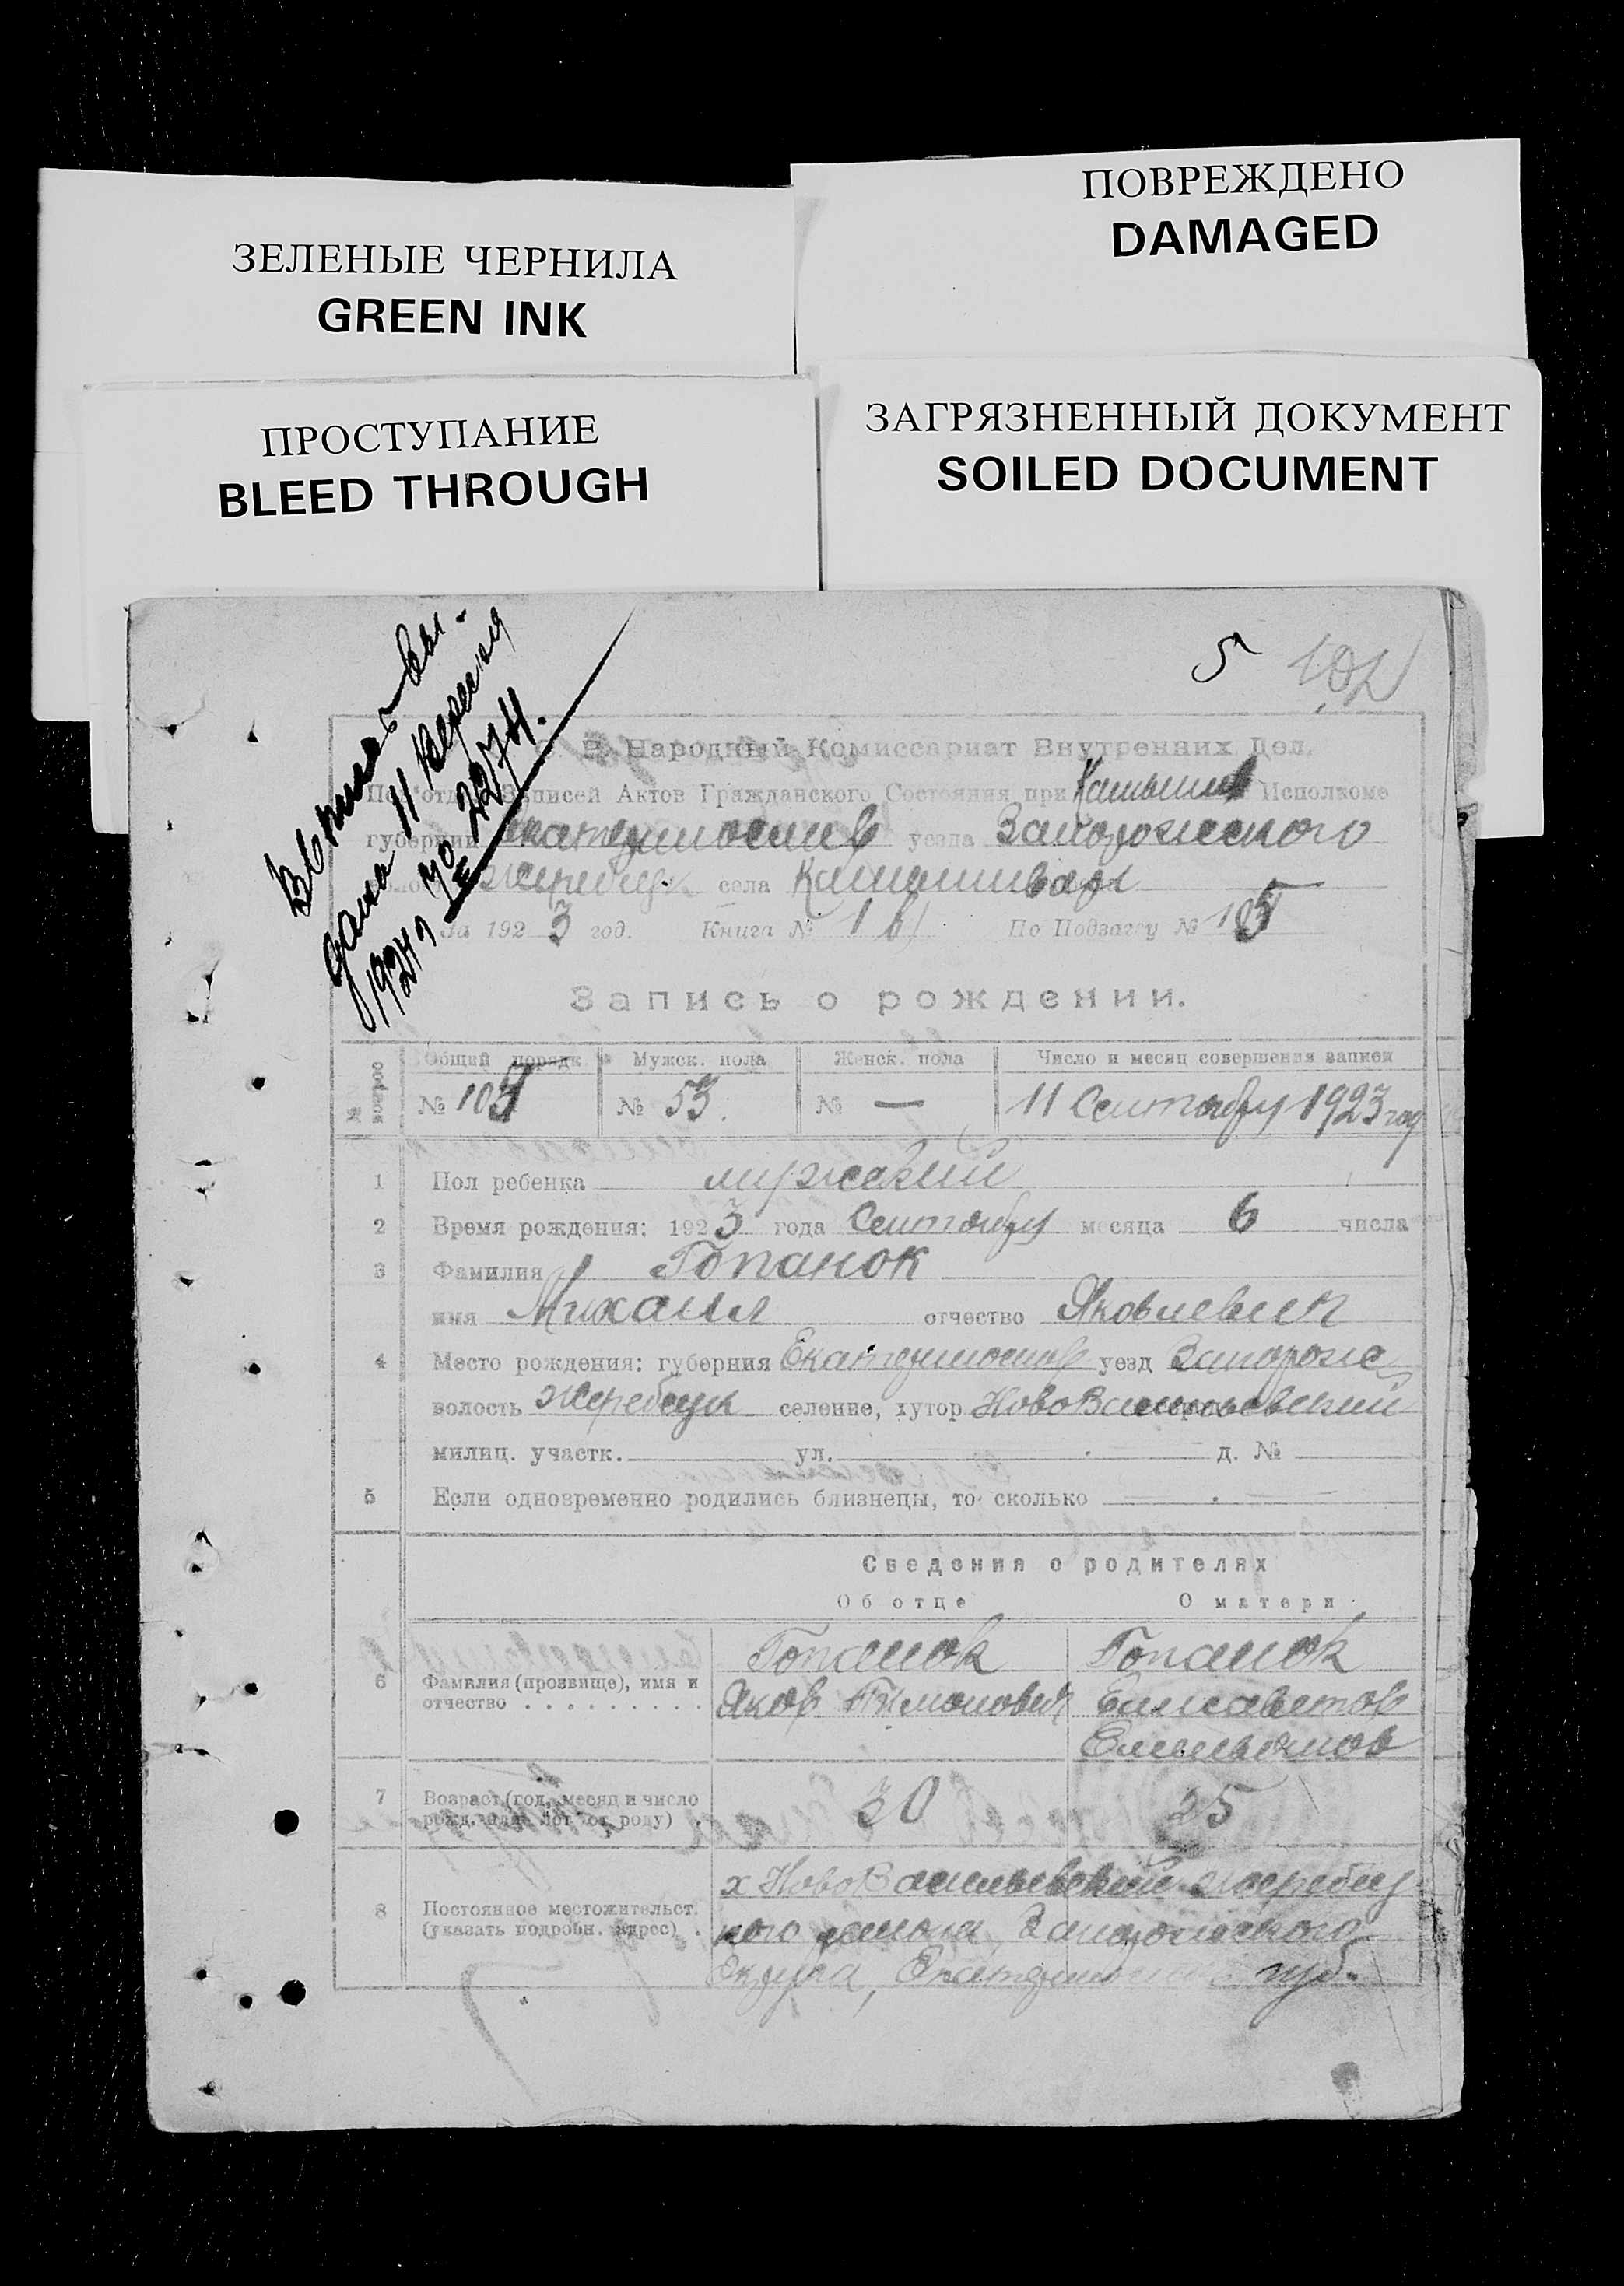 ПОВРЕЖДЕНО
DAMAGED
ЗЕЛЕНЫЕ ЧЕРНИЛА
GREEN INK
ПРОСТУПАНИЕ
BLEED THROUGH
ЗАГРЯЗНЕННЫЙ ДОКУМЕНТ
SOILED DOCUMENT
5 102
дана 11 Вересня
1924 г № 2274.
Народный Комиссариат Внутренних Дел.
Записей Актов Гражданского Состояния при Исполкоме
губернии уезда Запорожского
села
За 1923 год. Книга № 1 По Подзагсу № 105
Запись о рождении.
Общий порядк. Мужск. пола Женск. пола Число и месяц совершения записи
№ № 53. № — 11 Сентября 1923 год
1 Пол ребенка мужской
2 Время рождения: 1923 года Сентября месяца 6 числа
3 Фамилия Гопанок
имя Михаил отчество Яковлевич
4 Место рождения: губерния Екатеринослав уезд Запорож
волость Жеребецк селение, хутор НовоВасильевский
милиц. участк. ул. д. №
5 Если одновременно родились близнецы, то сколько
Сведения о родителях
Об отце О матери
Гопанок Гопанок
6 Фамилия (прозвище), имя и
отчество . . . . . . . . . Яков Тимонович Елисаветов
Емельянов
7 Возраст (год, месяц и число 30 25
рожд. или лет от роду) .
х НовоВасильевский Жеребец
8 Постоянное местожительст.
(указать подробн. адрес) . кого района Запорожского
Округа, Екатеринослав губ.